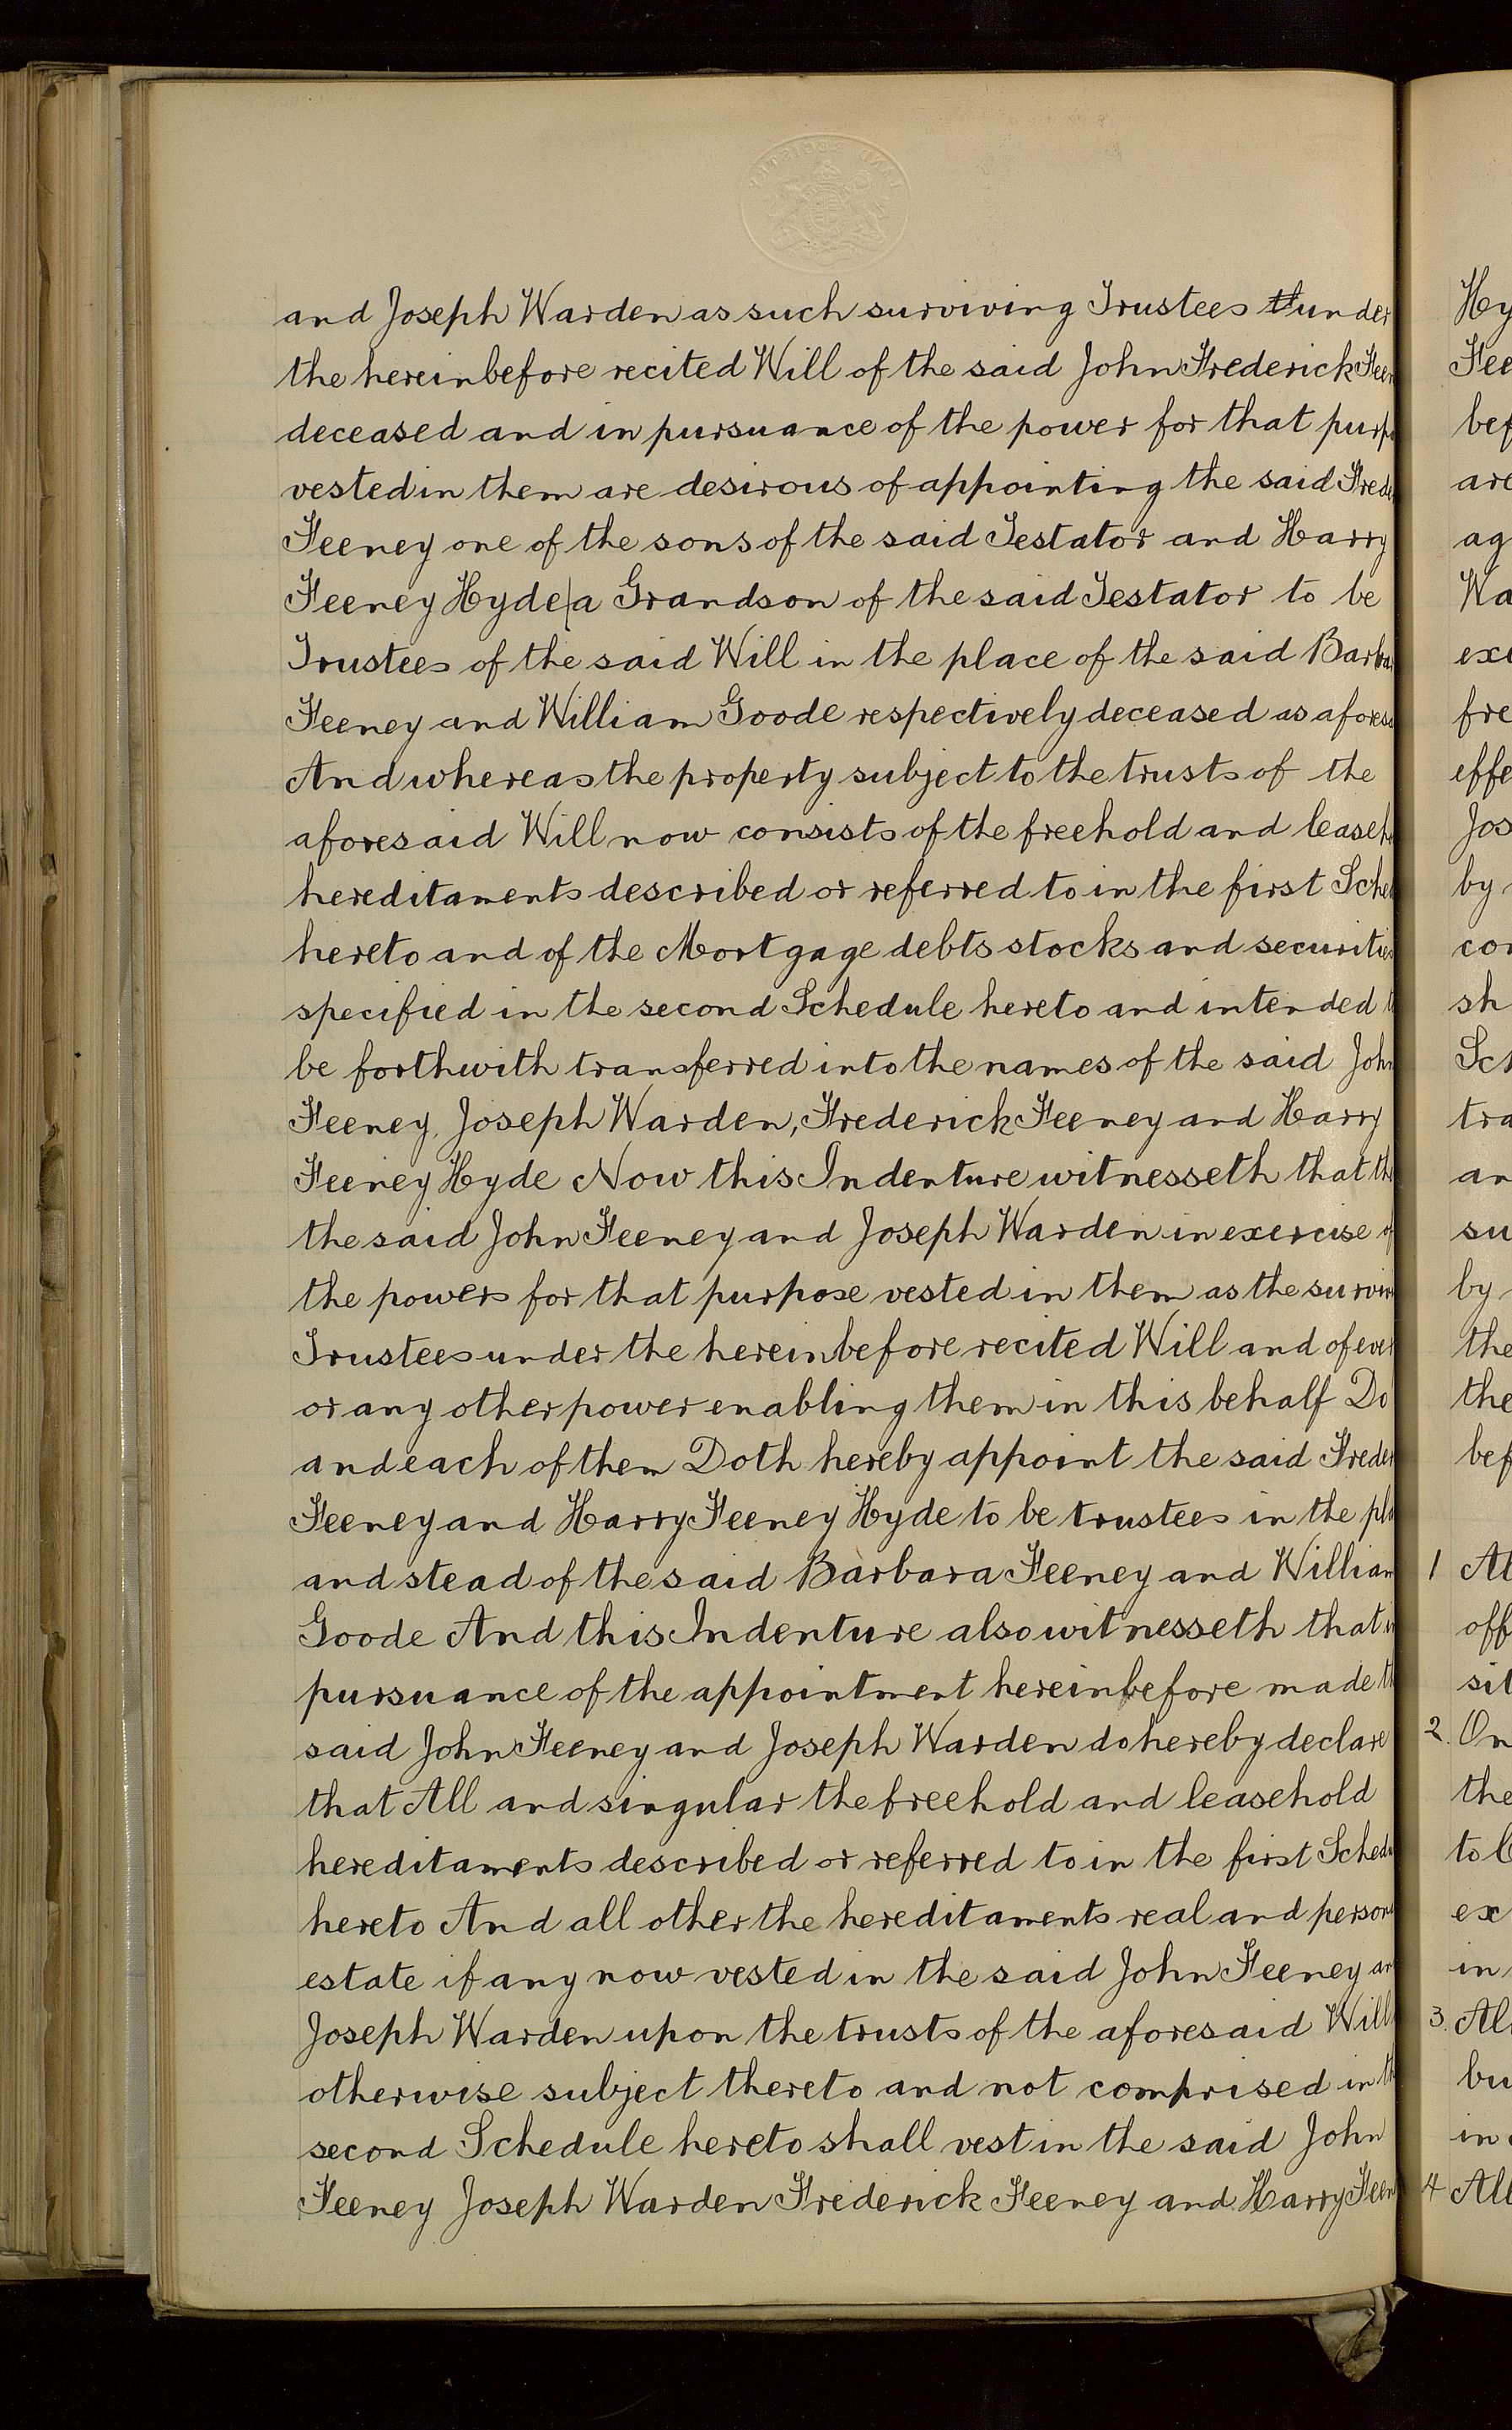 and Joseph Warden as such surviving Trustees under
the hereinbefore recited Will of the said John Frederick Feen
deceased and in pursuance of the power for that purpo
vested in them are desirous of appointing the said Frede
Feeney one of the sons of the said Testator and Harry
Feeney Hyde a Grandson of the said Testator to be
Trustees of the said Will in the place of the said Barba
Feeney and William Goode respectively deceased as aforesa
And whereas the property subject to the trusts of the
aforesaid Will now consists of the freehold and leaseh
hereditaments described or referred to in the first Sche
hereto and of the Mortgage debts stocks and securities
specified in the second Schedule hereto and intended t
be forthwith transferred into the names of the said John
Feeney, Joseph Warden, Frederick Feeney and Harry
Feeney Hyde Now this Indenture witnesseth that the
the said John Feeney and Joseph Warden in exercise of
the powers for that purpose vested in them as the survivi
Trustees under the hereinbefore recited Will and of ever
or any other power enabling them in this behalf Do
and each of them Doth hereby appoint the said Freder
Feeney and Harry Feeney Hyde to be trustees in the pla
and stead of the said Barbara Feeney and William
Goode And this Indenture also witnesseth that in
pursuance of the appointment hereinbefore made th
said John Feeney and Joseph Warden do hereby declare
that All and singular the freehold and leasehold
hereditaments described or referred to in the first Schedu
hereto And all other the hereditaments real and person
estate if any now vested in the said John Feeney an
Joseph Warden upon the trusts of the aforesaid Will
otherwise subject thereto and not comprised in th
second Schedule hereto shall vest in the said John
Feeney Joseph Warden Frederick Feeney and Harry Feen
Hy
Fee
bef
are
ag
Wa
exe
fre
effe
Jos
by
con
sh
Sch
tra
an
su
by
the
the
bef
1 Al
off
sit
2. On
the
to
ex
in
3. Al
bu
in
4 All